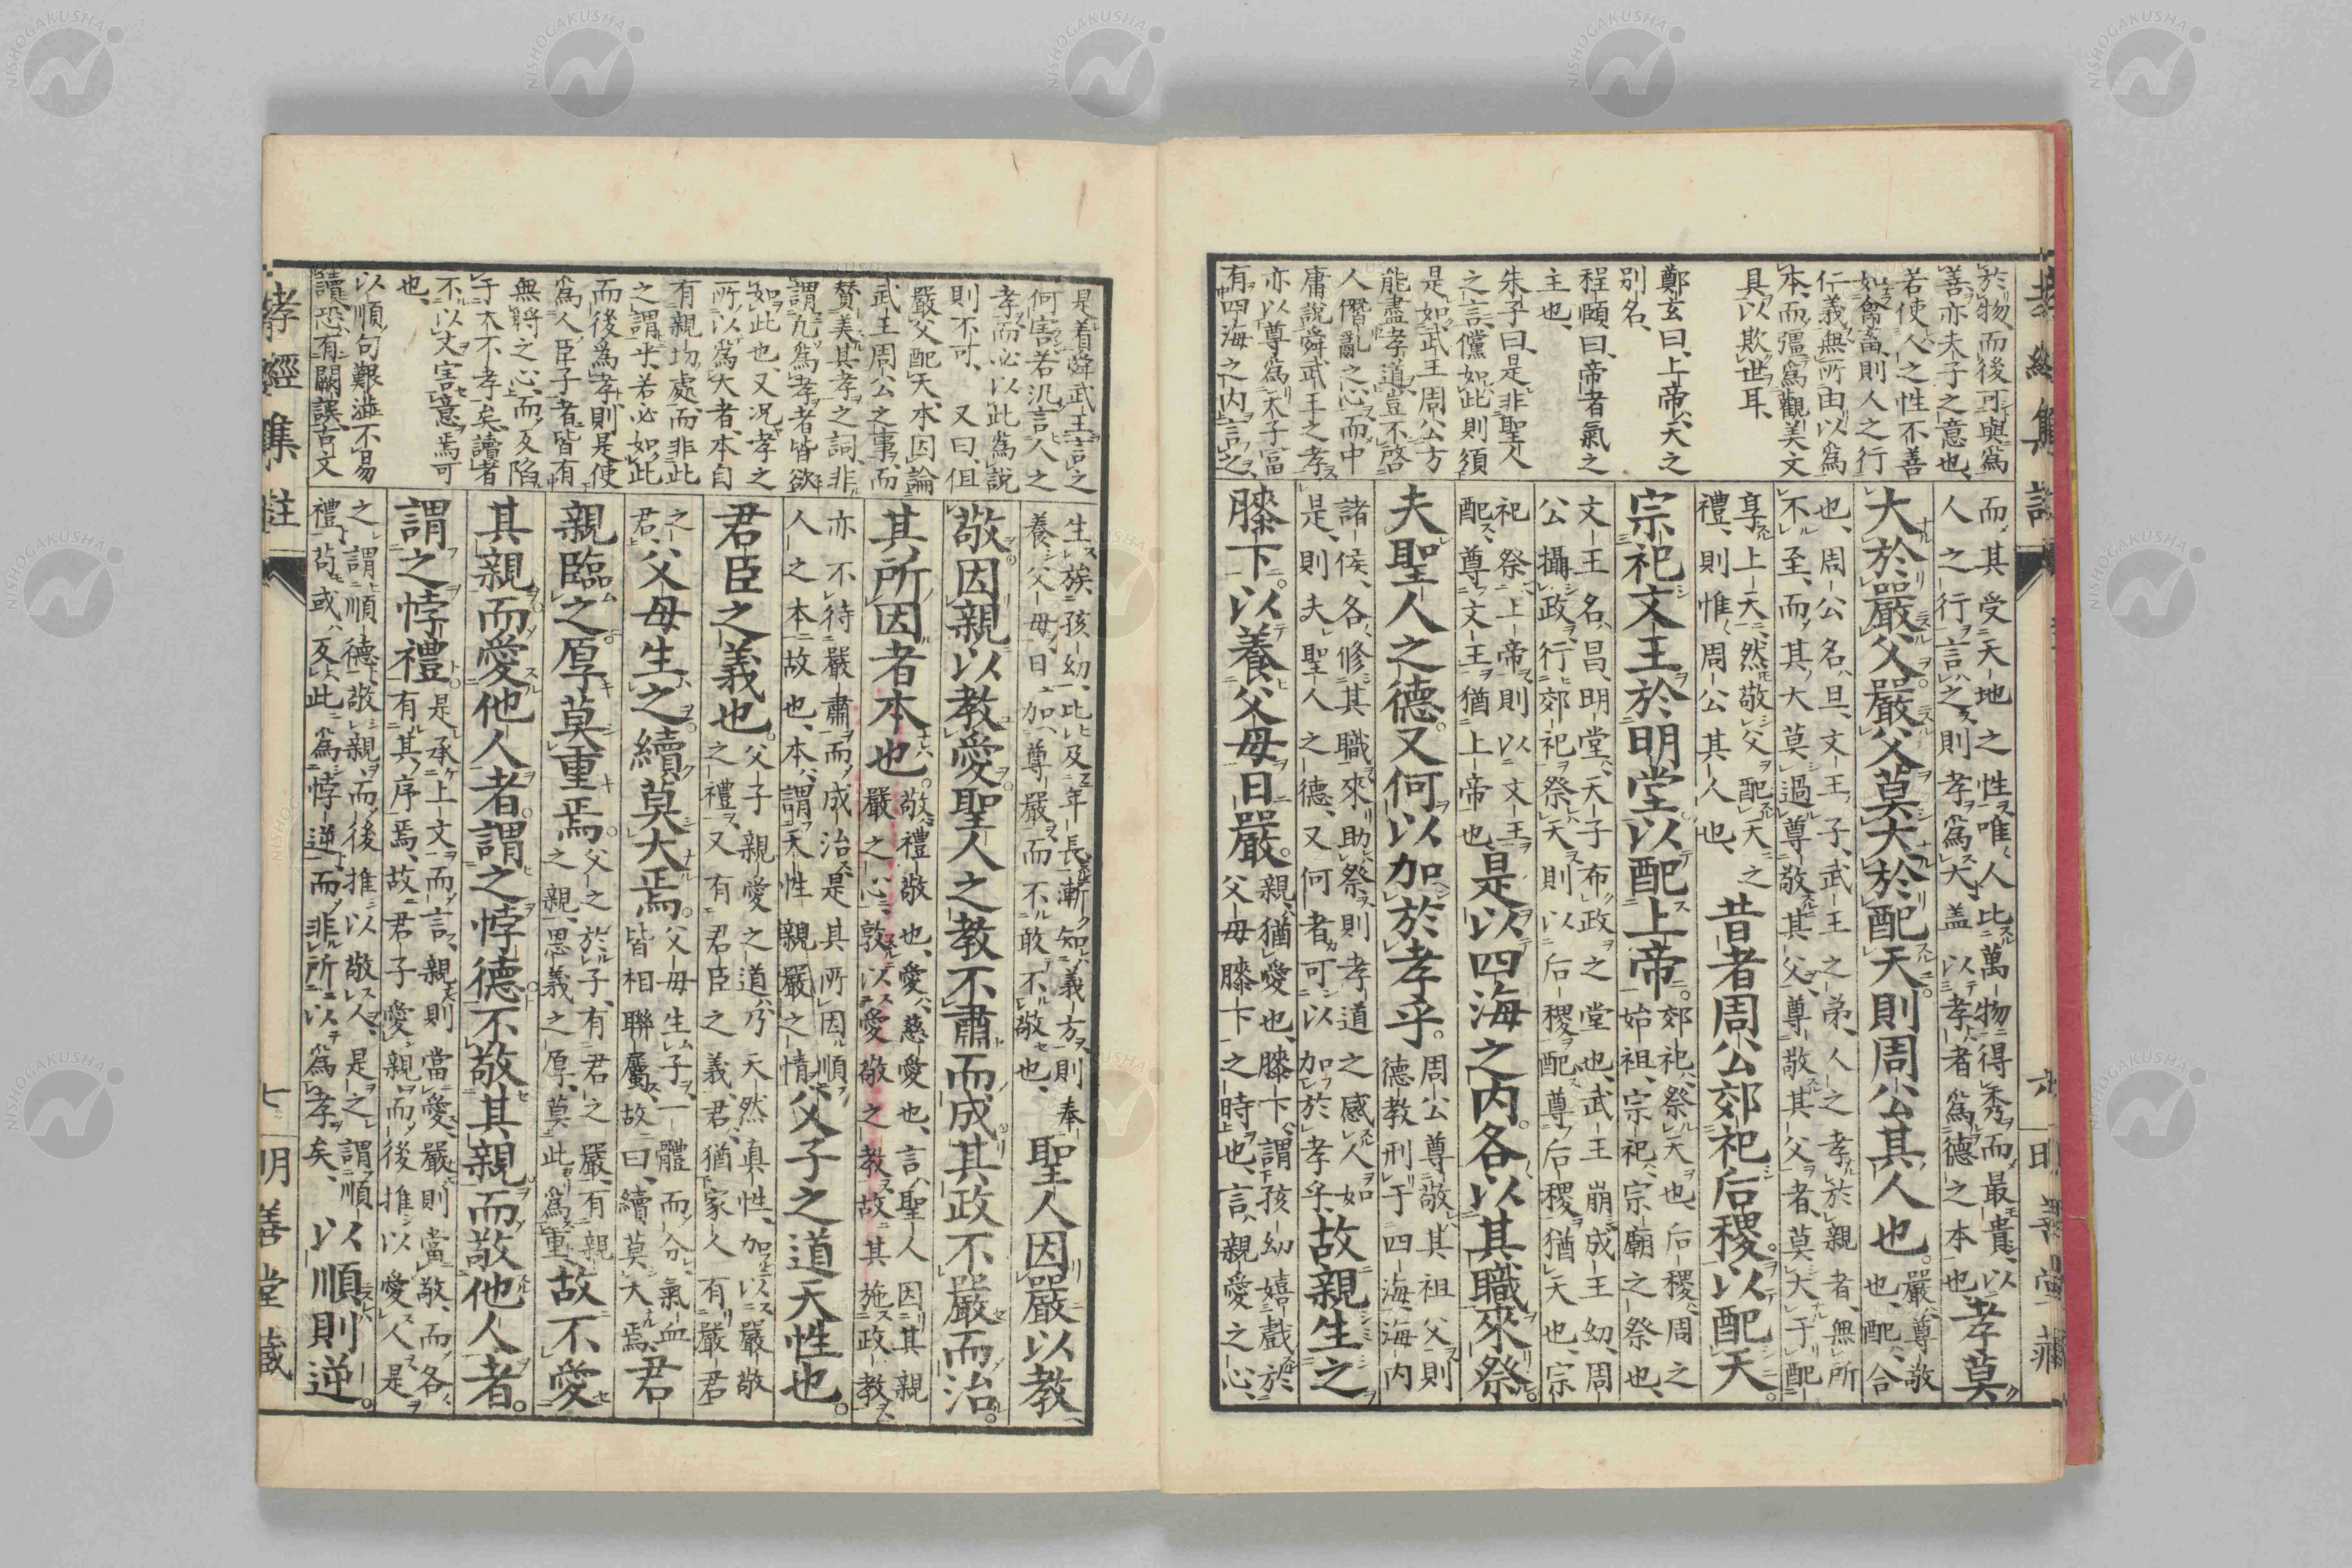 於物而後可與爲
善亦夫子之意也、
若使人之性不善
如禽畜則人之行
仁義無所由以爲
本、而彊爲觀美文
具以欺世耳、
鄭玄曰、上帝天之
別名、
程頤曰、帝者氣之
主也、
朱子曰、是非聖人
之言儻如此則須
是如武王周公方
能盡孝道豈不啓
人僭亂之心而中
庸說舜武王之孝
亦以尊爲天子富
有四海之内言之
而其受天地之性唯人比萬物得秀而最貴以
人之行言之則孝爲大蓋以孝者爲德之本也
孝莫
大於嚴父嚴父莫大於配天則周公其人也
嚴尊敬
也、配合
也、周公名旦文王子武王之弟、人之孝於親者、無所
不至、而其大莫過尊敬其父、尊敬其父者、莫大于配
享上天、然敬父配天之
禮、則惟周公其人也、
昔者周公郊祀后稷以配天
宗祀文王於明堂以配上帝
郊祀祭天也、后稷周之
始祖、宗祀宗廟之祭也、
文王名昌、明堂天子布政之堂也、武王崩成王幼周
公攝政、行郊祀祭天則以后稷配尊后稷猶天也、宗
祀祭上帝則以文王
配尊文王猶上帝也
是以四海之内各以其職來祭
夫聖人之德又何以加於孝乎
周公尊敬其祖父則
德教刑于四海海内
諸侯、各修其職來助祭則孝道之感人如
是、則夫聖人之德又何者可以加於孝乎
故親生之
膝下以養父母日嚴
親猶愛也、膝下謂孩幼嬉戲於
父母膝下之時也、言親愛之心、
孝經集註
明善堂藏
是着舜武王言之
何害若汎言人之
孝而必以此爲說
則不可、又曰但
嚴父配天、本因論
武王周公之事而
贊美其孝之詞、非
謂凡爲孝者皆欲
如此也、又况孝之
所以爲大者本自
有親切處、而非此
之謂乎若必如此
而後爲孝則是使
爲人臣子者皆有
無將之心、而反陷
于大不孝矣讀者
不以文害意焉可
也、
以順句艱澁不易
讀恐有闕誤古文
生族孩幼比及年長漸知義方則奉
養父母日加尊嚴而不敢不敬也、
聖人因嚴以教
敬因親以教愛聖人之教不肅而成其政不嚴而治
其所因者本也
敬禮敬也、愛慈愛也、言聖人因其親
嚴之心、敦以愛敬之教故其施政教
亦不待嚴肅而成治是其所因順
人之本故也、本謂天性親嚴之情
父子之道天性也
君臣之義也
父子親愛之道乃天然眞性、加以嚴敬
之禮、又有君臣之義君猶家人有嚴君
之
君
父母生之續莫大焉
父母生子一體而分、氣血
皆相聯屬、故曰、續莫大焉
君
親臨之厚莫重焉
父之於子、有君之嚴有親
之親、恩義之厚、莫此爲重
故不愛
其親而愛他人者謂之悖德不敬其親而敬他人者
謂之悖禮
是承上文而言、親則當愛、嚴則當敬、而各
有其序焉、故君子愛親而後推以愛人是
之謂順德敬親而後推以敬人、是之謂順
禮苟或反此爲悖逆而非所以爲孝矣、
以順則逆
孝經集註
七
明善堂藏